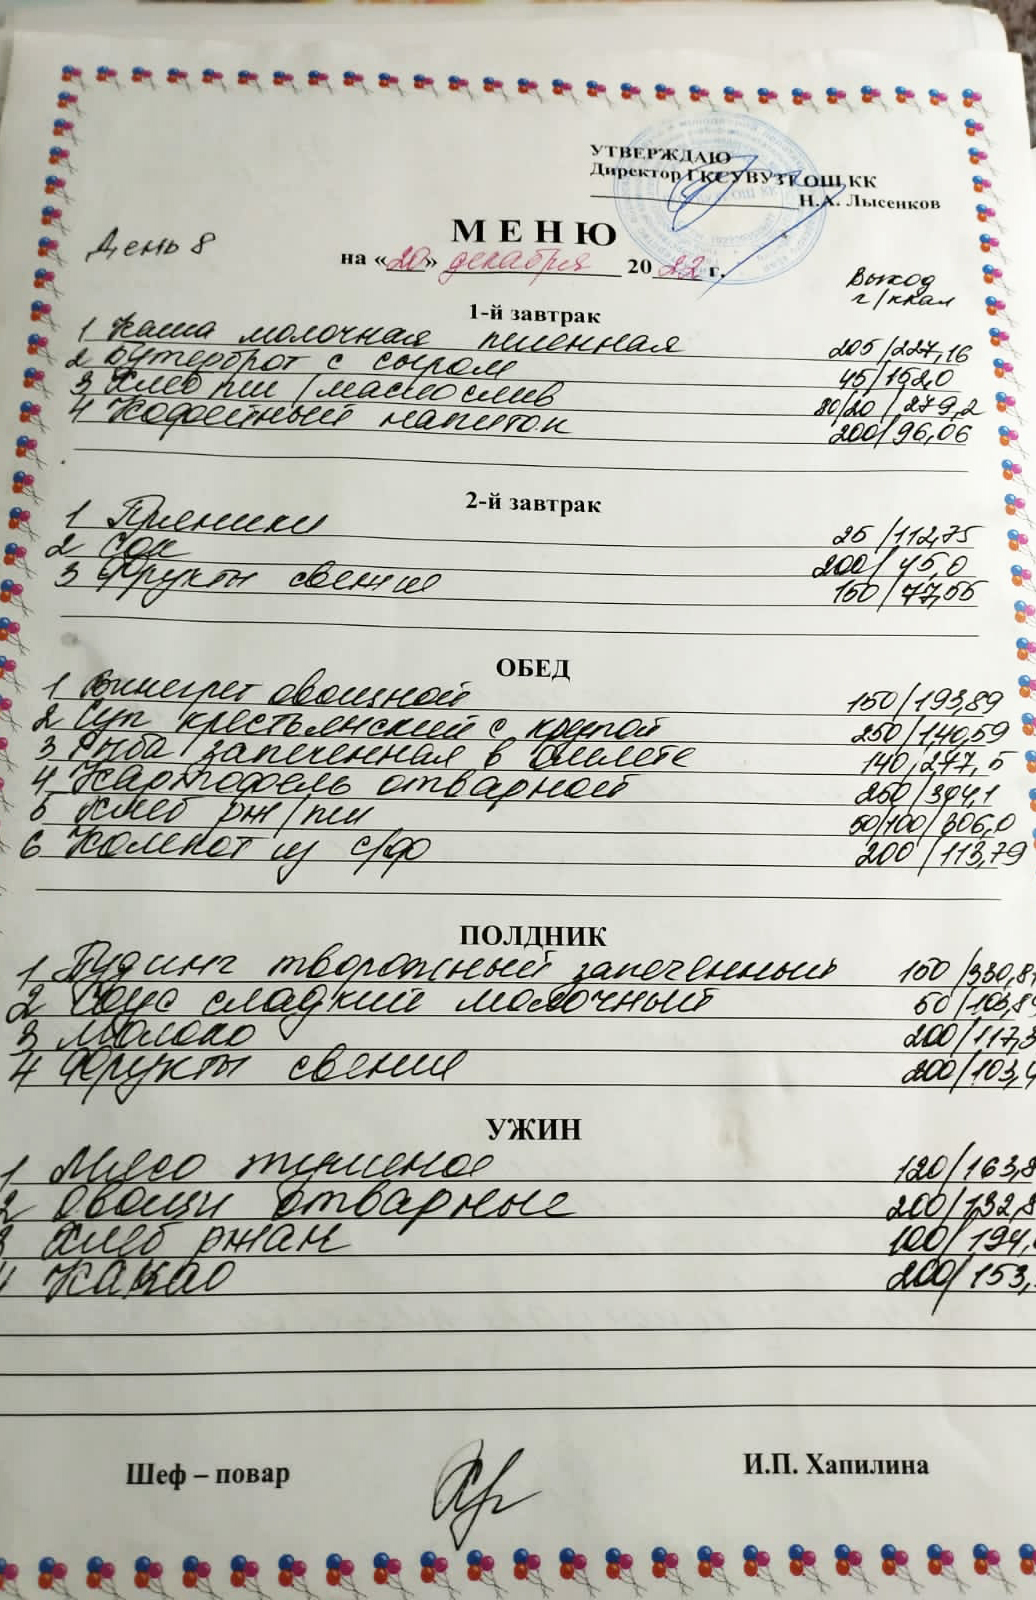 УТВЕРЖДАЮ
Директор ГКСУВУЗТ ОШ КК
Н.А. Лысенков
МЕНЮ
День 8
на «20» декабря 2022 г.
Выход
г/ккал
1-й завтрак
1 Каша молочная пшенная 205/227,16
2 Бутерброт с сыром 45/152,0
3 Хлеб пш/масло слив 80/20/279,2
4 Кофейный напиток 200/96,06
2-й завтрак
1 Пряники 25/112,75
2 Сок 200/45,0
3 Фрукты свежие 150/77,55
ОБЕД
1 Винегрет овощной 150/193,89
2 Суп крестьянский с крупой 250/140,59
3 Рыба запеченная в омлете 140/277,5
4 Картофель отварной 250/394,1
5 Хлеб рж/пш 50/100/306,0
6 Компот из с/ф 200/113,79
ПОЛДНИК
1 Пудинг творожный запеченный 150/330,8
2 Соус сладкий молочный 50/103,8
3 Молоко 200/117,3
4 Фрукты свежие 200/103,4
УЖИН
1 Мясо тушеное 120/163,8
2 Овощи отварные 200/132,8
3 Хлеб ржан 100/194,
4 Какао 200/153,
Шеф – повар И.П. Хапилина